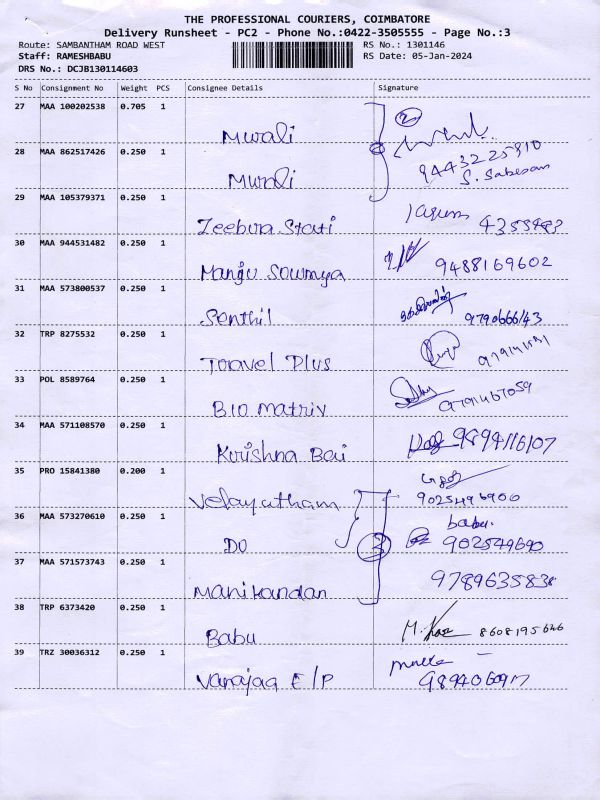 THE PROFESSIONAL COURIERS, COIMBATORE
Delivery Runsheet - PC2 - Phone No.:0422-3505555 - Page No.:3
Route: SAMBANTHAM ROAD WEST RS No.: 1301146
Staff: RAMESHBABU RS Date: 05-Jan-2024
DRS No.: DCJB130114603
S No Consignment No Weight PCS Consignee Details Signature
27 MAA 100202538 0.705 1
2
Mwali
28 MAA 862517426 0.250 1
9443225910
S. Sabesan
Murali
29 MAA 105379371 0.250 1
Zeebra Stati 4355483
30 MAA 944531482 0.250 1
Manju Sowmya 9488169602
31 MAA 573800537 0.250 1
Senthil 9790666143
32 TRP 8275532 0.250 1
Travel Plus
33 POL 8589764 0.250 1
Bio matriv 9791467059
34 MAA 571108570 0.250 1
Krishna Bai 9894116107
35 PRO 15841380 0.200 1
Velayutham 9025496900
36 MAA 573270610 0.250 1
babu.
DO 902549690
37 MAA 571573743 0.250 1
3
Manikandan 9789635838
38 TRP 6373420 0.250 1
Babu 8608195646
39 TRZ 30036312 0.250 1
Vanajaa E/P 989406097